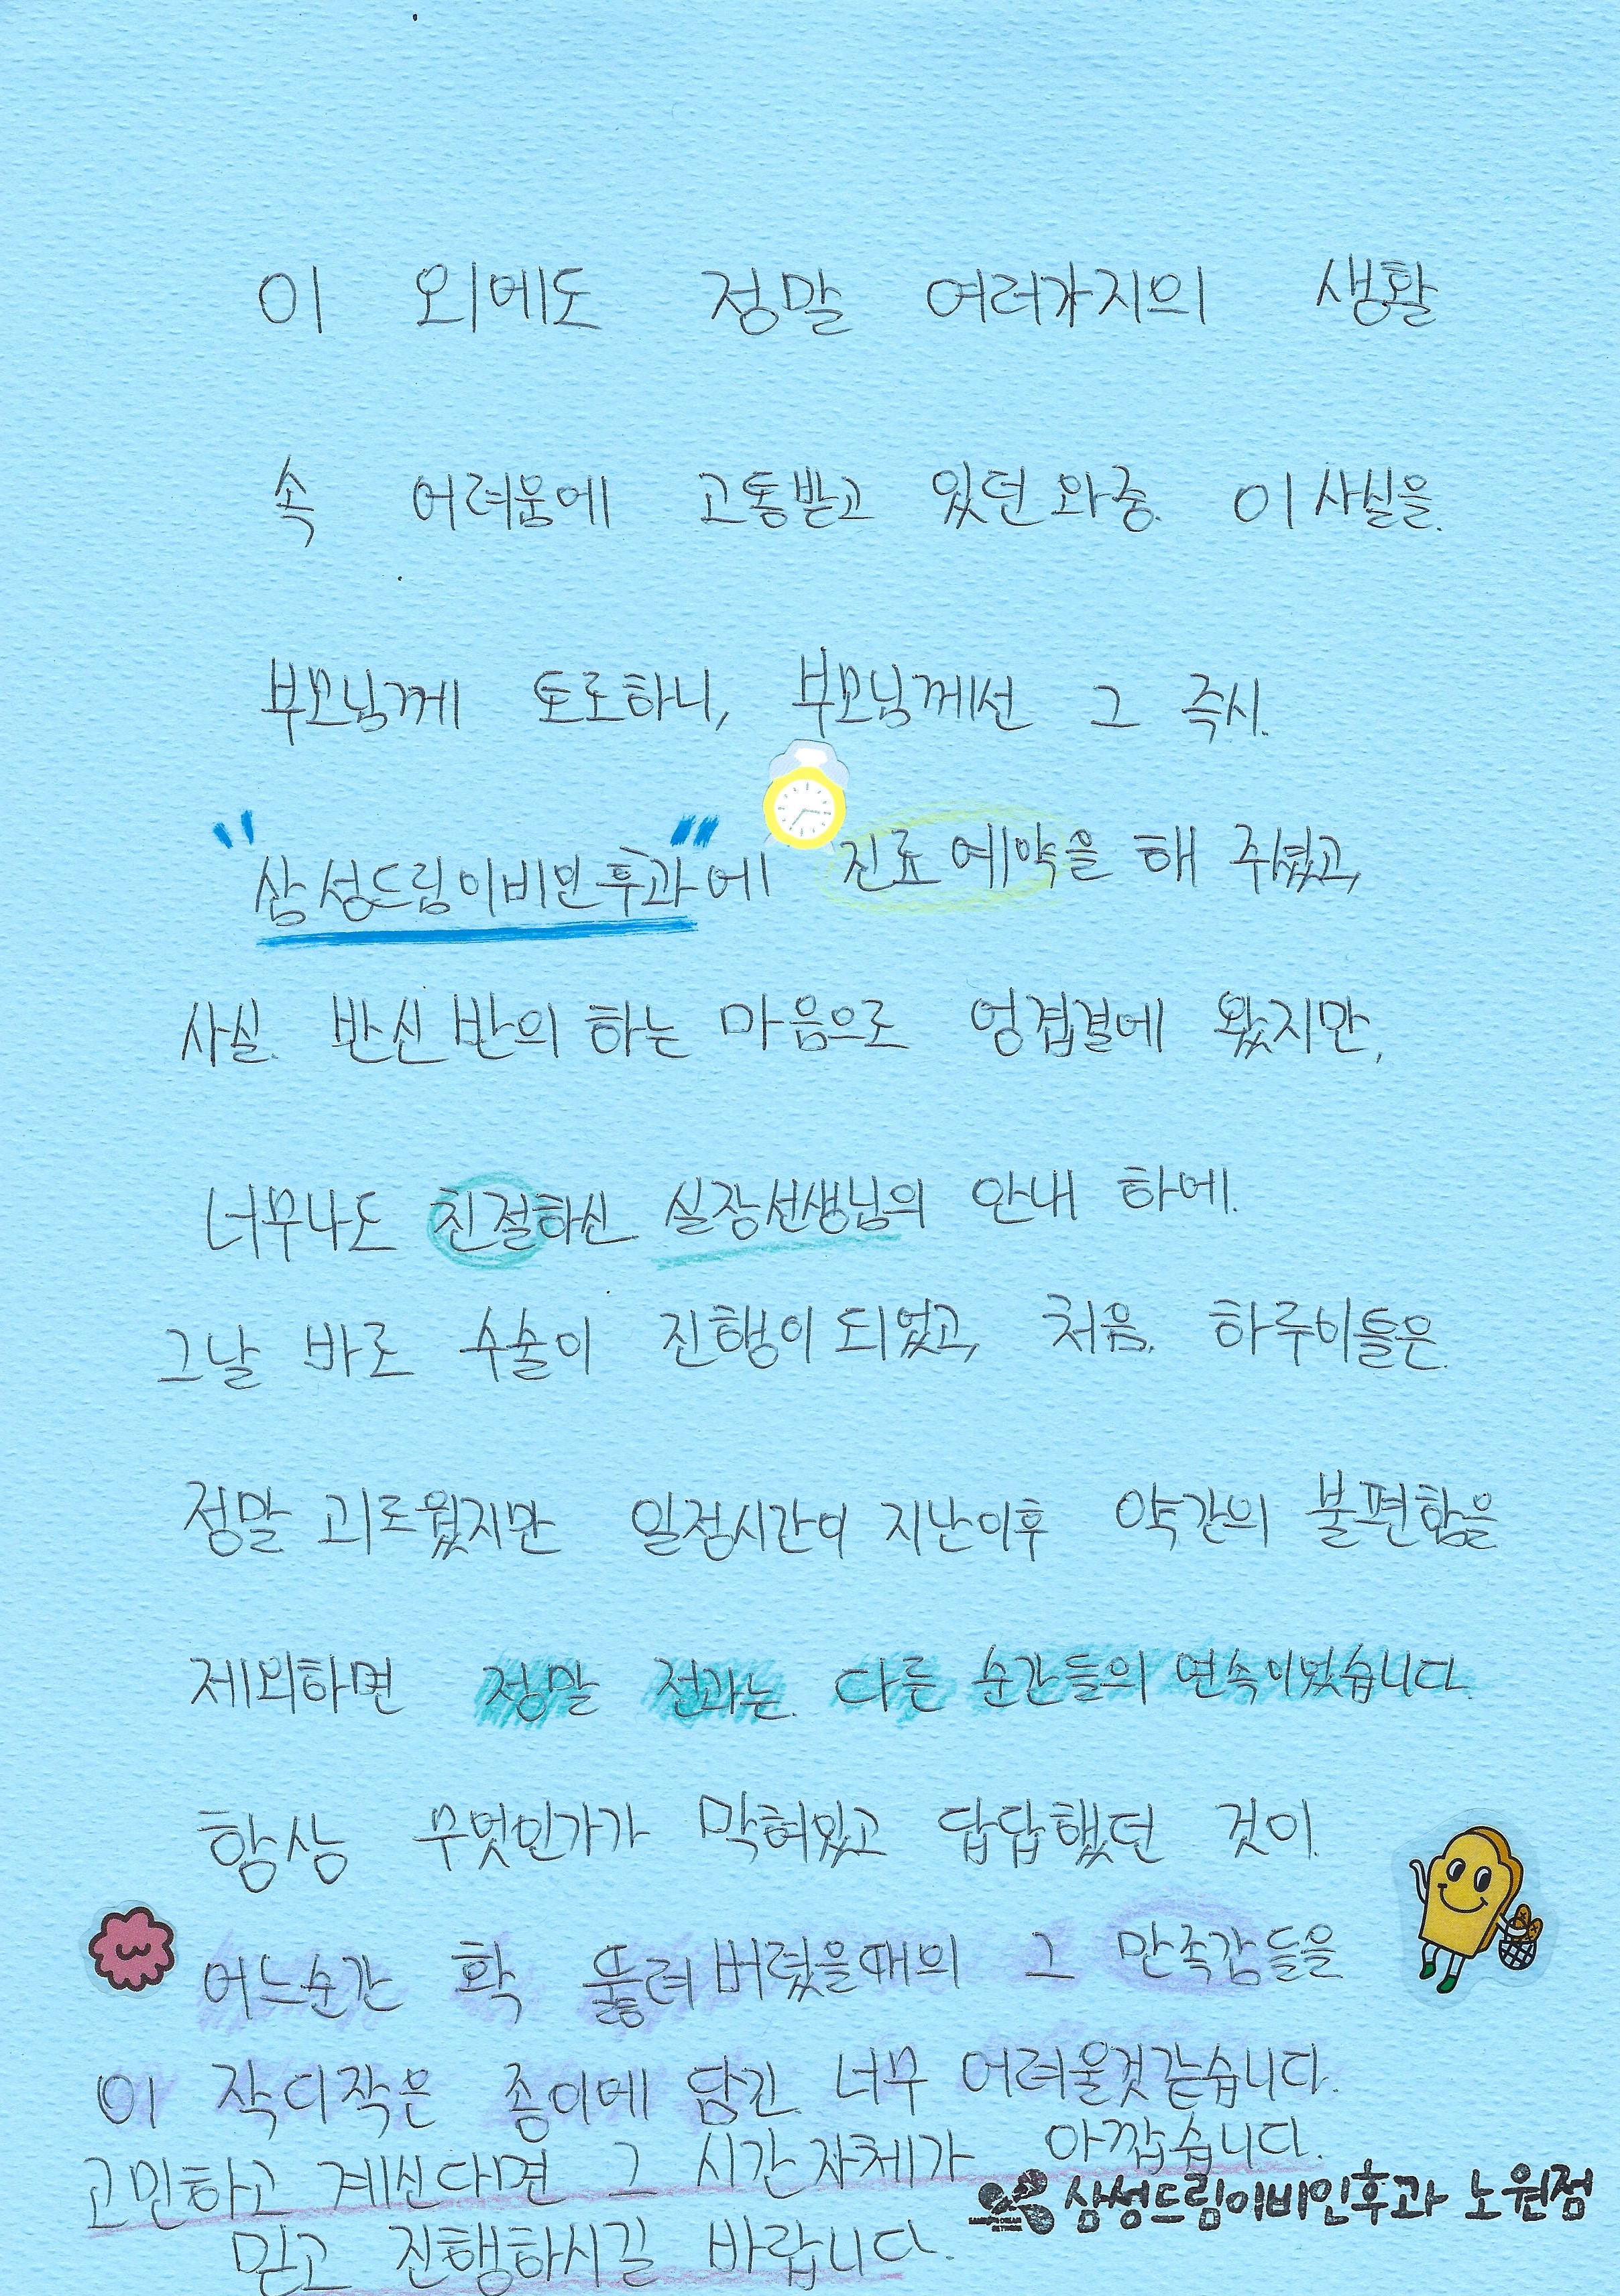 이 외에도 정말 여러가지의 생활
속 어려움에 고통받고 있던 와중. 이 사실을.
부모님께 토로하니, 부모님께선 그 즉시.
"삼성드림이비인후과"에 진료예약을 해 주셨고,
사실. 반신반의 하는 마음으로 엉겁결에 왔지만,
너무나도 친절하신 실장선생님의 안내 하에.
그날 바로 수술이 진행이 되었고, 처음. 하루이틀은.
정말 괴로웠지만 일정시간이 지난이후 약간의 불편함을
제외하면 정말 전과는. 다른 순간들의 연속이었습니다.
항상 무엇인가가 막혀있고 답답했던 것이.
어느순간 확 뚫려버렸을때의 그 만족감들을
이 작디작은 종이에 담긴 너무 어려울것같습니다.
고민하고 계신다면 그 시간자체가 아깝습니다.
믿고 진행하시길 바랍니다.
삼성드림이비인후과 노원점